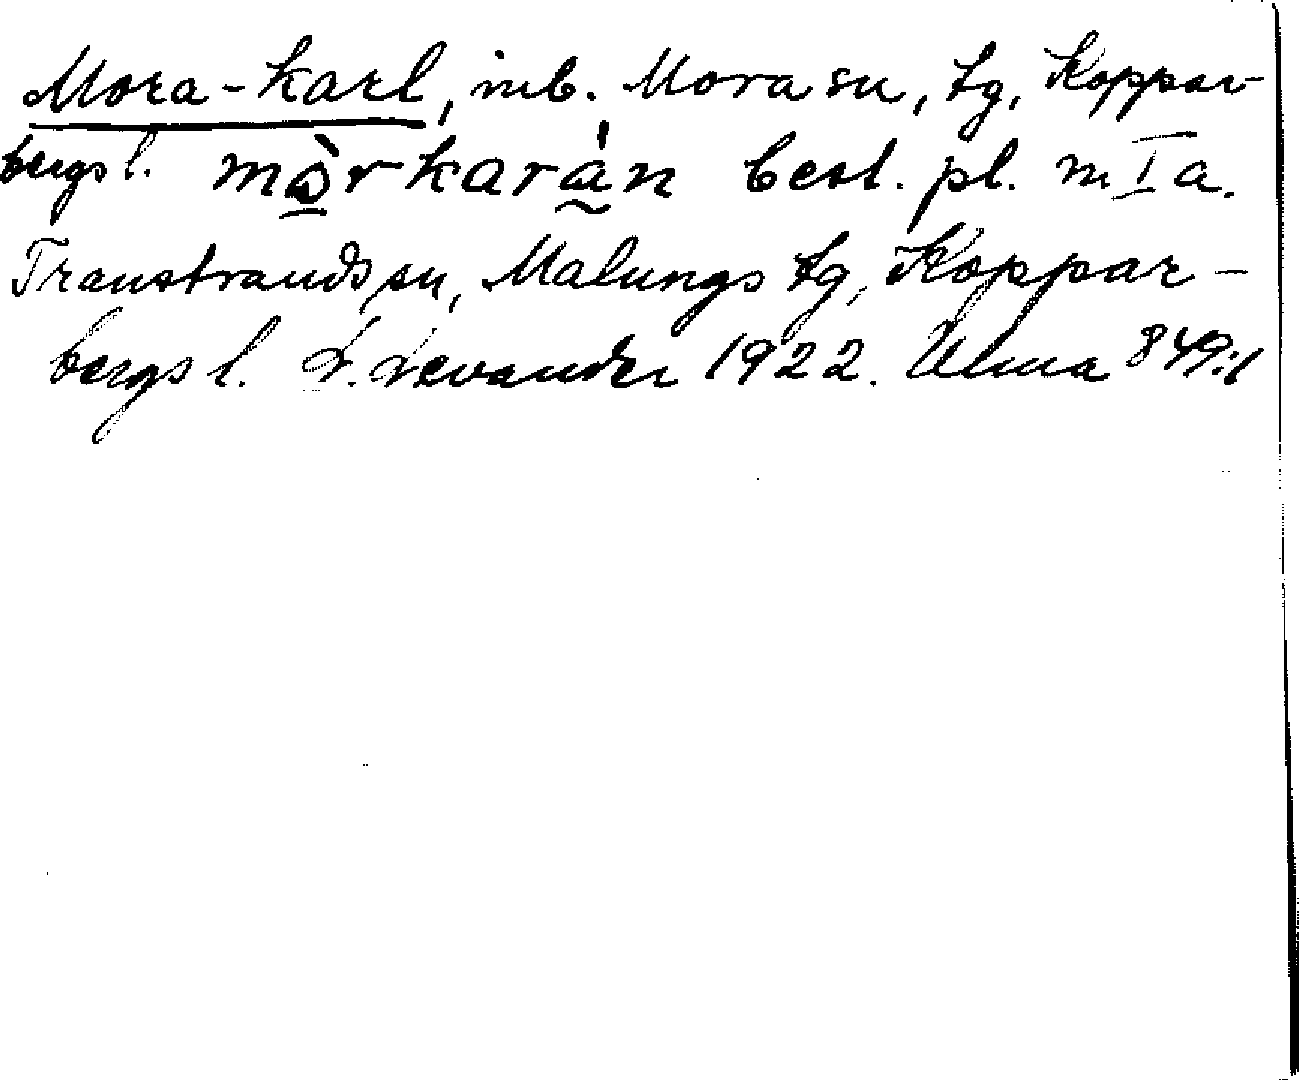 Mora-karl, inb. Mora sn, tg, Koppar-
bergs l. mò̱rkarà̰n best. pl. m I a.
Transtrands sn, Malungs tg, Koppar-
bergs l. L. Levander 1922. Ulma 849:1